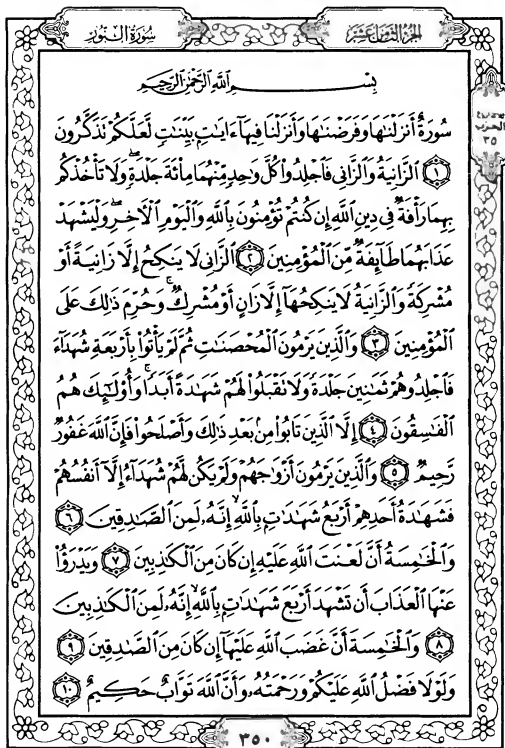 سُورَةُ النُّورِ
الجزء الثامن عشر
بِسْمِ اللَّهِ الرَّحْمَٰنِ الرَّحِيمِ
سُورَةٌ أَنزَلْنَٰهَا وَفَرَضْنَٰهَا وَأَنزَلْنَا فِيهَآ ءَايَٰتٍۭ بَيِّنَٰتٍ لَّعَلَّكُمْ تَذَكَّرُونَ
الحزب
٣٥
﴿١﴾ ٱلزَّانِيَةُ وَٱلزَّانِى فَٱجْلِدُوا۟ كُلَّ وَٰحِدٍ مِّنْهُمَا مِا۟ئَةَ جَلْدَةٍ ۖ وَلَا تَأْخُذْكُم
بِهِمَا رَأْفَةٌ فِى دِينِ ٱللَّهِ إِن كُنتُمْ تُؤْمِنُونَ بِٱللَّهِ وَٱلْيَوْمِ ٱلْءَاخِرِ ۖ وَلْيَشْهَدْ
عَذَابَهُمَا طَآئِفَةٌ مِّنَ ٱلْمُؤْمِنِينَ ﴿٢﴾ ٱلزَّانِى لَا يَنكِحُ إِلَّا زَانِيَةً أَوْ
مُشْرِكَةً وَٱلزَّانِيَةُ لَا يَنكِحُهَآ إِلَّا زَانٍ أَوْ مُشْرِكٌ ۚ وَحُرِّمَ ذَٰلِكَ عَلَى
ٱلْمُؤْمِنِينَ ﴿٣﴾ وَٱلَّذِينَ يَرْمُونَ ٱلْمُحْصَنَٰتِ ثُمَّ لَمْ يَأْتُوا۟ بِأَرْبَعَةِ شُهَدَآءَ
فَٱجْلِدُوهُمْ ثَمَٰنِينَ جَلْدَةً وَلَا تَقْبَلُوا۟ لَهُمْ شَهَٰدَةً أَبَدًا ۚ وَأُو۟لَٰٓئِكَ هُمُ
ٱلْفَٰسِقُونَ ﴿٤﴾ إِلَّا ٱلَّذِينَ تَابُوا۟ مِنۢ بَعْدِ ذَٰلِكَ وَأَصْلَحُوا۟ فَإِنَّ ٱللَّهَ غَفُورٌ
رَّحِيمٌ ﴿٥﴾ وَٱلَّذِينَ يَرْمُونَ أَزْوَٰجَهُمْ وَلَمْ يَكُن لَّهُمْ شُهَدَآءُ إِلَّآ أَنفُسُهُمْ
فَشَهَٰدَةُ أَحَدِهِمْ أَرْبَعُ شَهَٰدَٰتٍۭ بِٱللَّهِ ۙ إِنَّهُۥ لَمِنَ ٱلصَّٰدِقِينَ ﴿٦﴾
وَٱلْخَٰمِسَةُ أَنَّ لَعْنَتَ ٱللَّهِ عَلَيْهِ إِن كَانَ مِنَ ٱلْكَٰذِبِينَ ﴿٧﴾ وَيَدْرَؤُا۟
عَنْهَا ٱلْعَذَابَ أَن تَشْهَدَ أَرْبَعَ شَهَٰدَٰتٍۭ بِٱللَّهِ ۙ إِنَّهُۥ لَمِنَ ٱلْكَٰذِبِينَ
﴿٨﴾ وَٱلْخَٰمِسَةَ أَنَّ غَضَبَ ٱللَّهِ عَلَيْهَآ إِن كَانَ مِنَ ٱلصَّٰدِقِينَ ﴿٩﴾
وَلَوْلَا فَضْلُ ٱللَّهِ عَلَيْكُمْ وَرَحْمَتُهُۥ وَأَنَّ ٱللَّهَ تَوَّابٌ حَكِيمٌ ﴿١٠﴾
٣٥٠